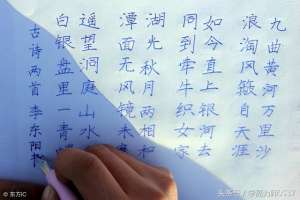 九曲黄河万里沙
浪淘风簸自天涯
如今直上银河去
同到牵牛织女家
湖光秋月两相和
潭面无风镜未
遥望洞庭山水
白银盘里一青
古诗两首 李东阳书
东方IC